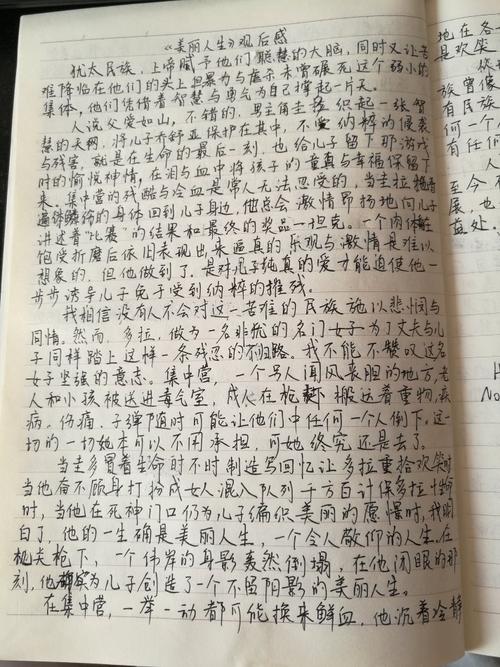 《美丽人生》观后感
犹太民族，上帝赋予他们聪慧的大脑，同时又让苦
难降临在他们的头上但暴力与虐杀未曾碾死这个弱小的
集体，他们凭借着智慧与勇气为自己撑起一片天。
人说父爱如山，不错的，男主角圭多织起一张智
慧的天网，将儿子乔舒亚保护在其中，不受纳粹的侵袭
与残害，就是在生命的最后一刻，也给儿子留下那游戏
时的愉悦神情，在泪与血中将孩子的童真与幸福保留下
来，集中营的残酷与冷血是常人无法忍受的，当圭多拖着
遍体鳞伤的身体回到儿子身边，他总会激情昂扬地向儿子
讲述着"比赛"的结果和最终的奖品一坦克。一个肉体在
饱受折磨后依旧表现出来逼真的乐观与激情是难以
想象的，但他做到了，是对儿子纯真的爱才能迫使他一
步步诱导儿子免于受到纳粹的摧残。
我相信没有人不会对这一苦难的民族施以悲悯与
同情。然而，多拉，做为一名非犹的名门女子为了丈夫与儿
子同样踏上这样一条残忍的不归路。我不能不赞叹这名
女子坚强的意志。集中营，一个号人闻风丧胆的地方，老
人和小孩被送进毒气室，成人在枪下搬运着重物，疾
病、伤痛、子弹随时可能让他们中任何一个人倒下。这一
切的一切她本可以不用承担，可她终究还是去了。
当圭多冒着生命时不时制造写回忆让多拉重拾欢笑时
当他奋不顾身打扮成女人混入队列千方百计保多拉性命
时，当他在死神门口仍为儿子编织美丽的愿憬时，我明
白了，他的一生确是美丽人生，一个令人敬仰的人生。在
机关枪下，一个伟岸的身影轰然倒塌，在他闭眼的那
刻，他为儿子创造了一个不留阴影的美丽人生。
在集中营，一举一动都可能换来鲜血，他沉着冷静
地在各
是欢笑
族曾像
有民族
何一个
有任何
至今不
展，也
盘处。
H
No